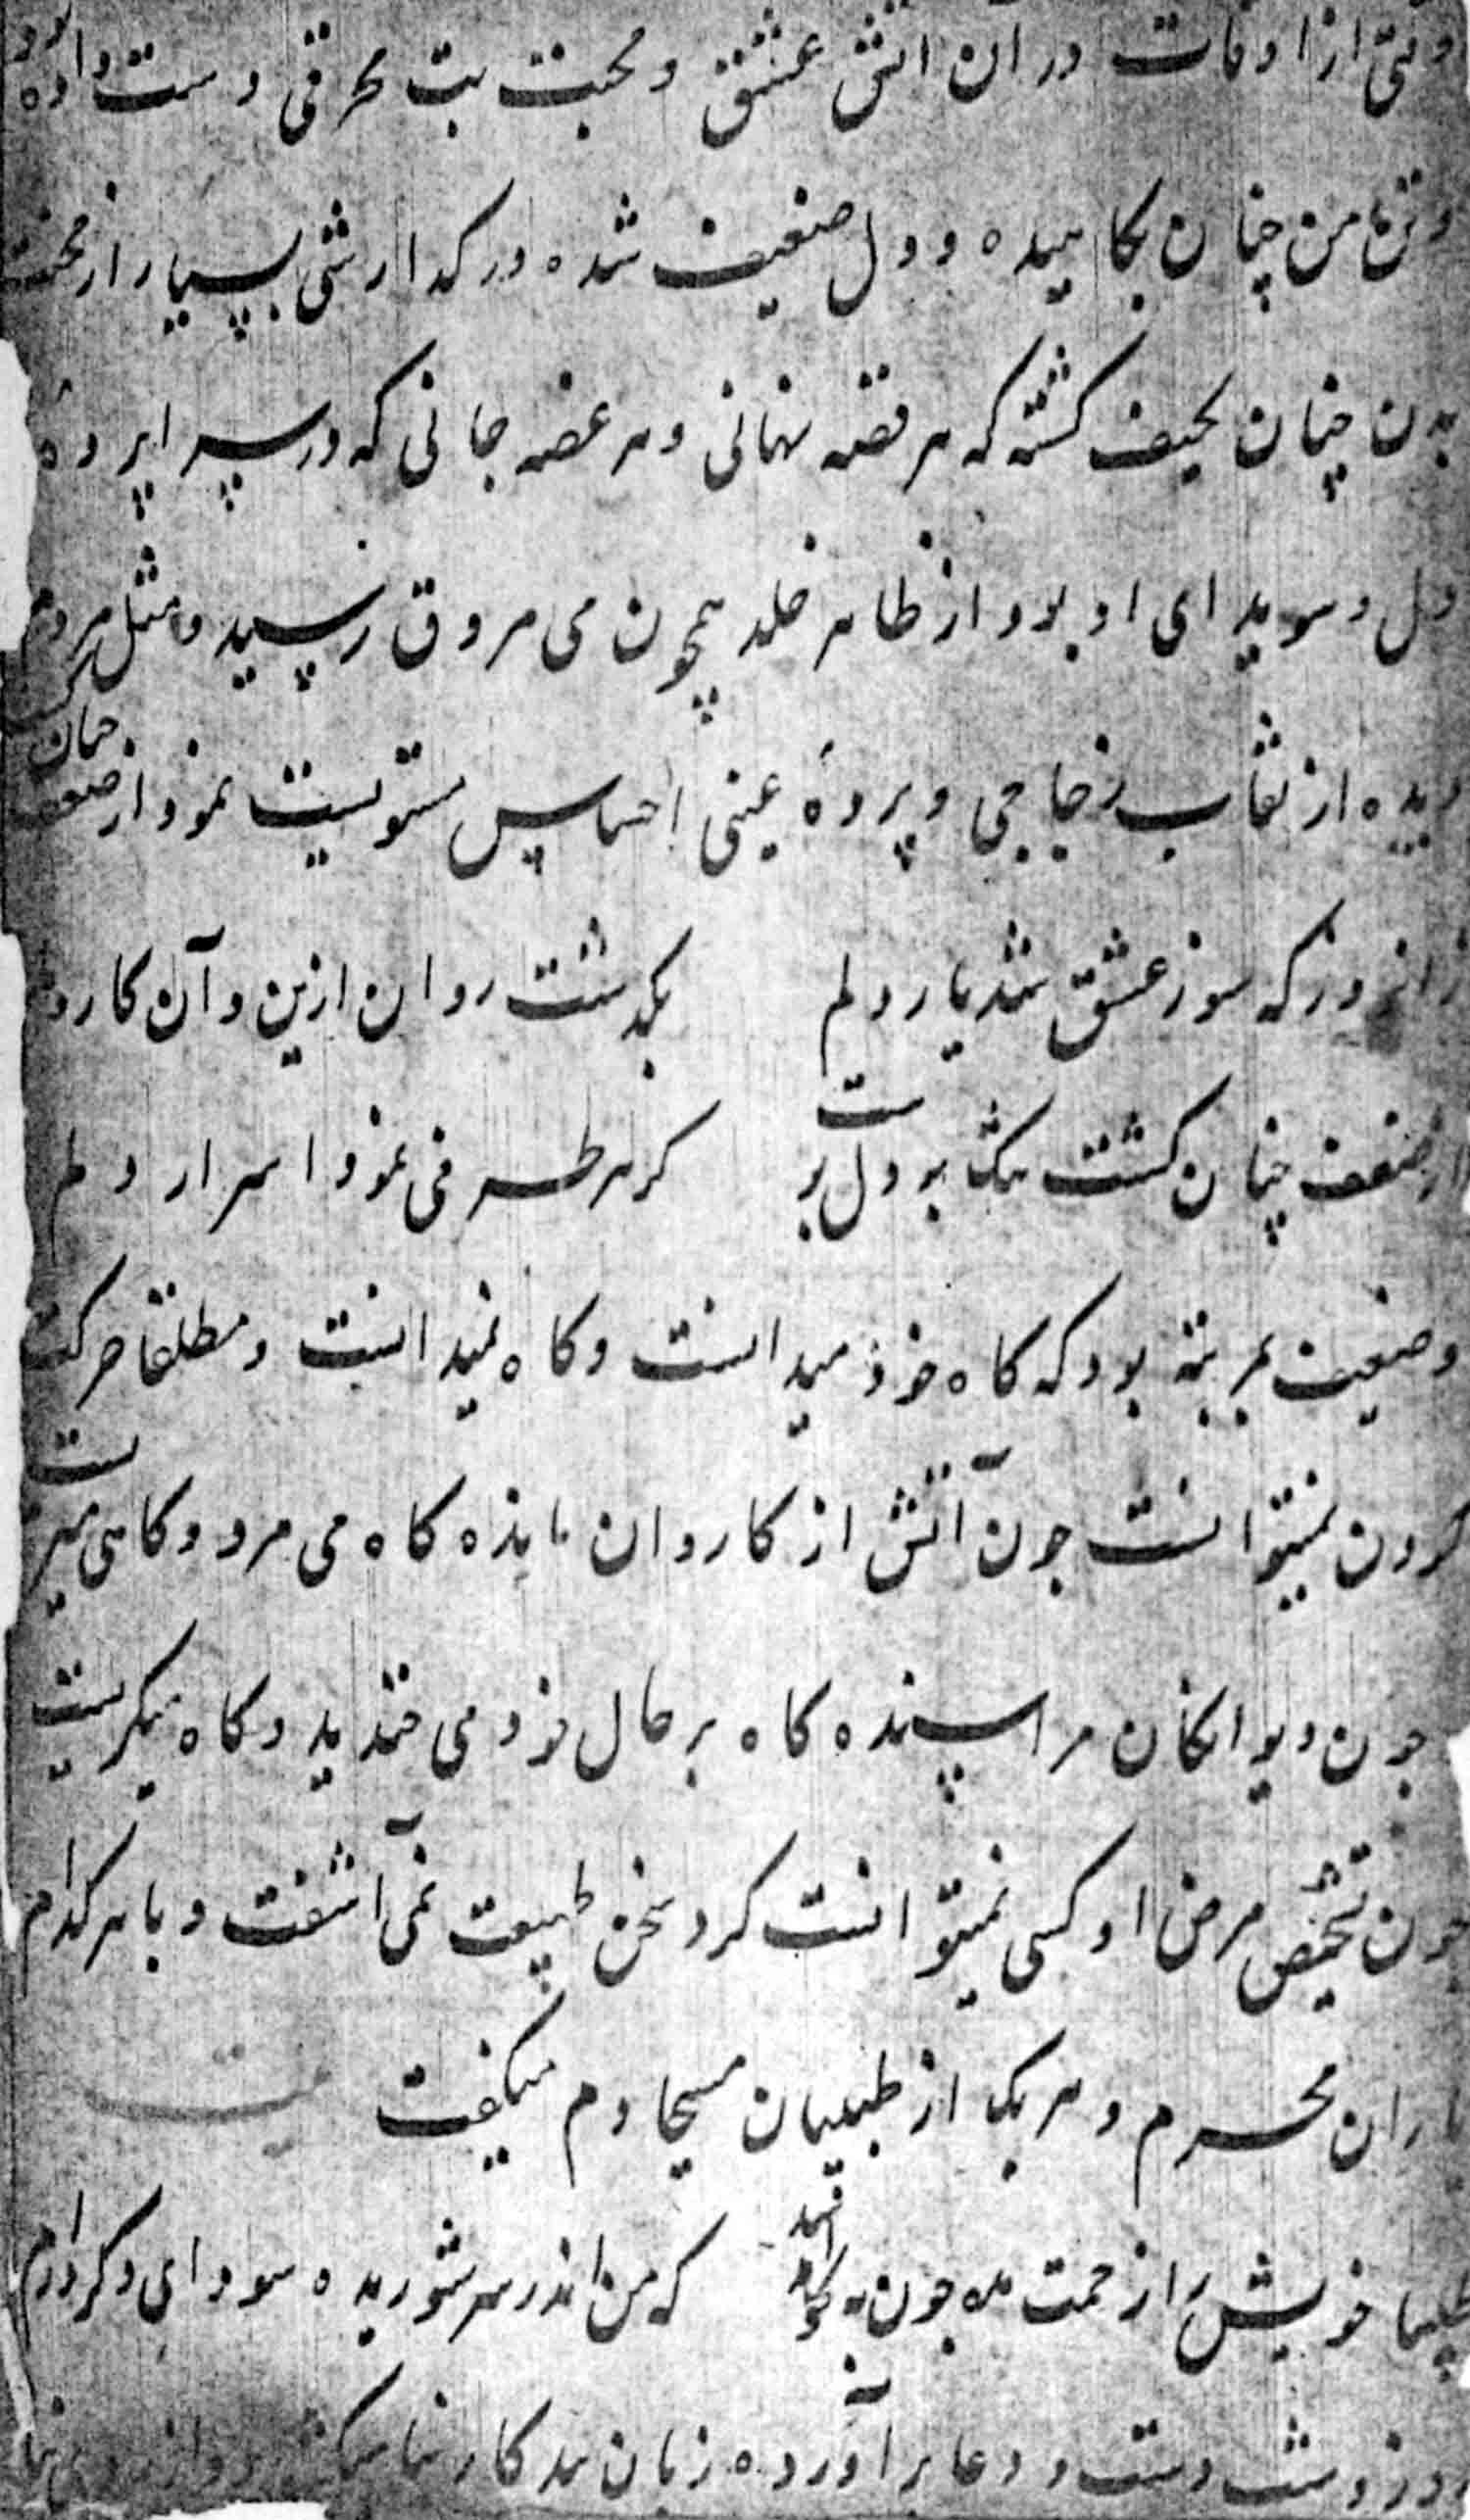 وقتی از اوقات در آن اتش عشق و محبت بت محرقی دست داده بود
و تن من چنان بکاهیده و دل ضعیف شده در کدارشی بسیار از محنت
بدن چنان نحیف کشته که هر قصه نهانی و هر غصه جانی که در سراپردهٔ
دل و سویدای او بود از ظاهر جلد همچون می مروق رسید و مثل مردم
دیده از نقاب زجاجی و پردهٔ عینی احساس میتوانست نمود از ضعف چنان
زانروز که سوز عشق شد یار دلم بکذشت روان ازین و آن کار دلم
از ضعف چنان کشت تنک بر دل پوست کز هر طرفی نمود اسرار دلم
و ضعیف بمرتبهٔ بود که کاه خود میدانست و کاه نمیدانست و مطلقا حرکت
کردن نمیتوانست جون آتش از کاروان مانده کاه می مرد و کاهی میزیست
جون دیوانکان مراسنده کاه بر حال خود می خندید و کاه میکریست
جون تشخیص مرض او کسی نمیتوانست کرد سخن طبیعت نمی آشفت و با هر کدام
یاران محرم و هر یک از طبیبان مسیحا دم میکفت
طبیبا خویش را زحمت مده جون به نخواهد شد که من اندر سر شوریده سودای دکر دارم
روز و شب دست و دعا برآورده زبان